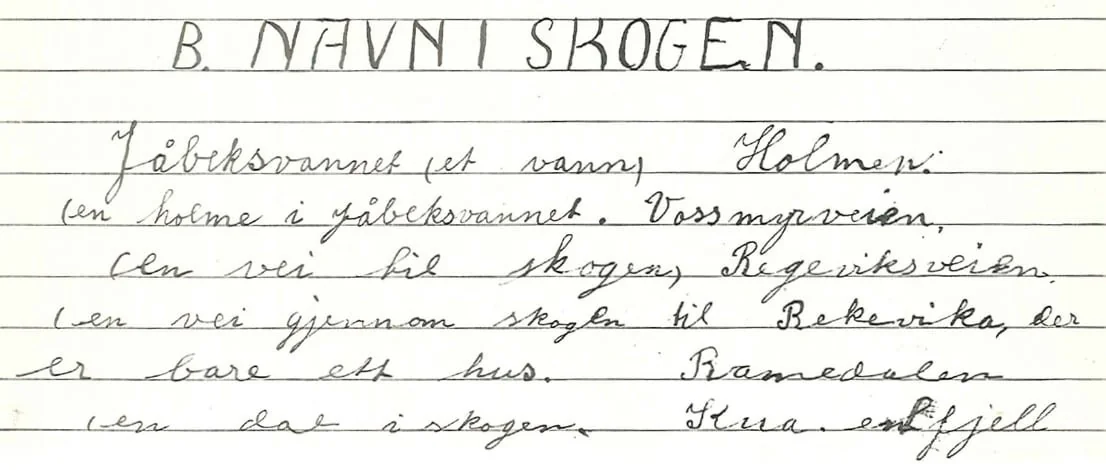 B. NAVN I SKOGEN.
Jåbeksvannet (et vann) Holmen:
(en holme i Jåbeksvannet. Vossmyrveien,
(en vei til skogen) Regeviksveien.
(en vei gjennom skogen til Rekevika, der
er bare ett hus. Ramedalen
(en dal i skogen. Kua. fjell